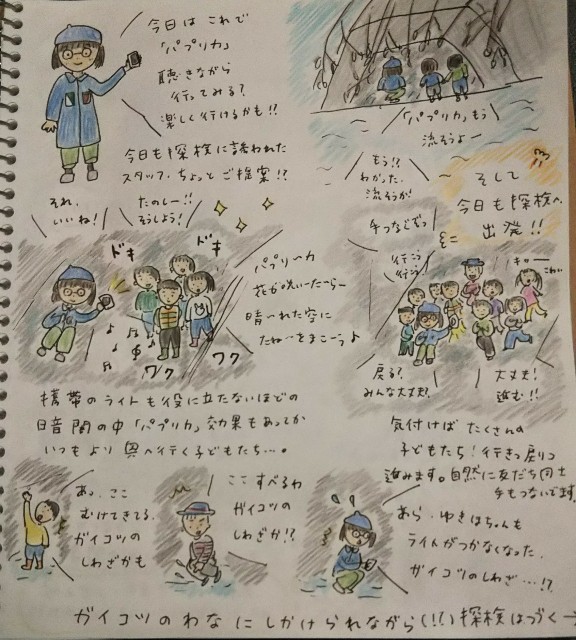 今日は これで
「パプリカ」
聴きながら
行ってみる?
楽しく行けるかも!!
今日も探検に誘われた
スタッフ、ちょっとご提案!?
「パプリカ」もう
流そうよー
もう!?
わかった、
流そうか!
そして
今日も探検へ
出発!!
それ、
いいね!
たのしー!!
そうしよう!
ドキ
ドキ
ワク
ワク
パプリーカ
花が咲いたーらー
晴ーれた空に
たねーをまこーうよ
携帯のライトも役に立たないほどの
暗闇の中「パプリカ」効果もあってか
いつもより奥へ行く子どもたち…。
手つなごっ
行こう
行こう!
キャー
こわい
戻る?
みんな大丈夫?
大丈夫!
進む!!
気付けば たくさんの
子どもたち!行きつ戻りつ
進みます。自然に友だち同士
手もつないでます。
あっ、ここ
むけてきてる。
ガイコツの
しわざかも
ここ すべるわ
ガイコツの
しわざか!?
あら、ゆきはちゃんも
ライトがつかなくなった。
ガイコツのしわざ…!?
ガイコツのわなにしかけられながら(!!)探検はつづく→